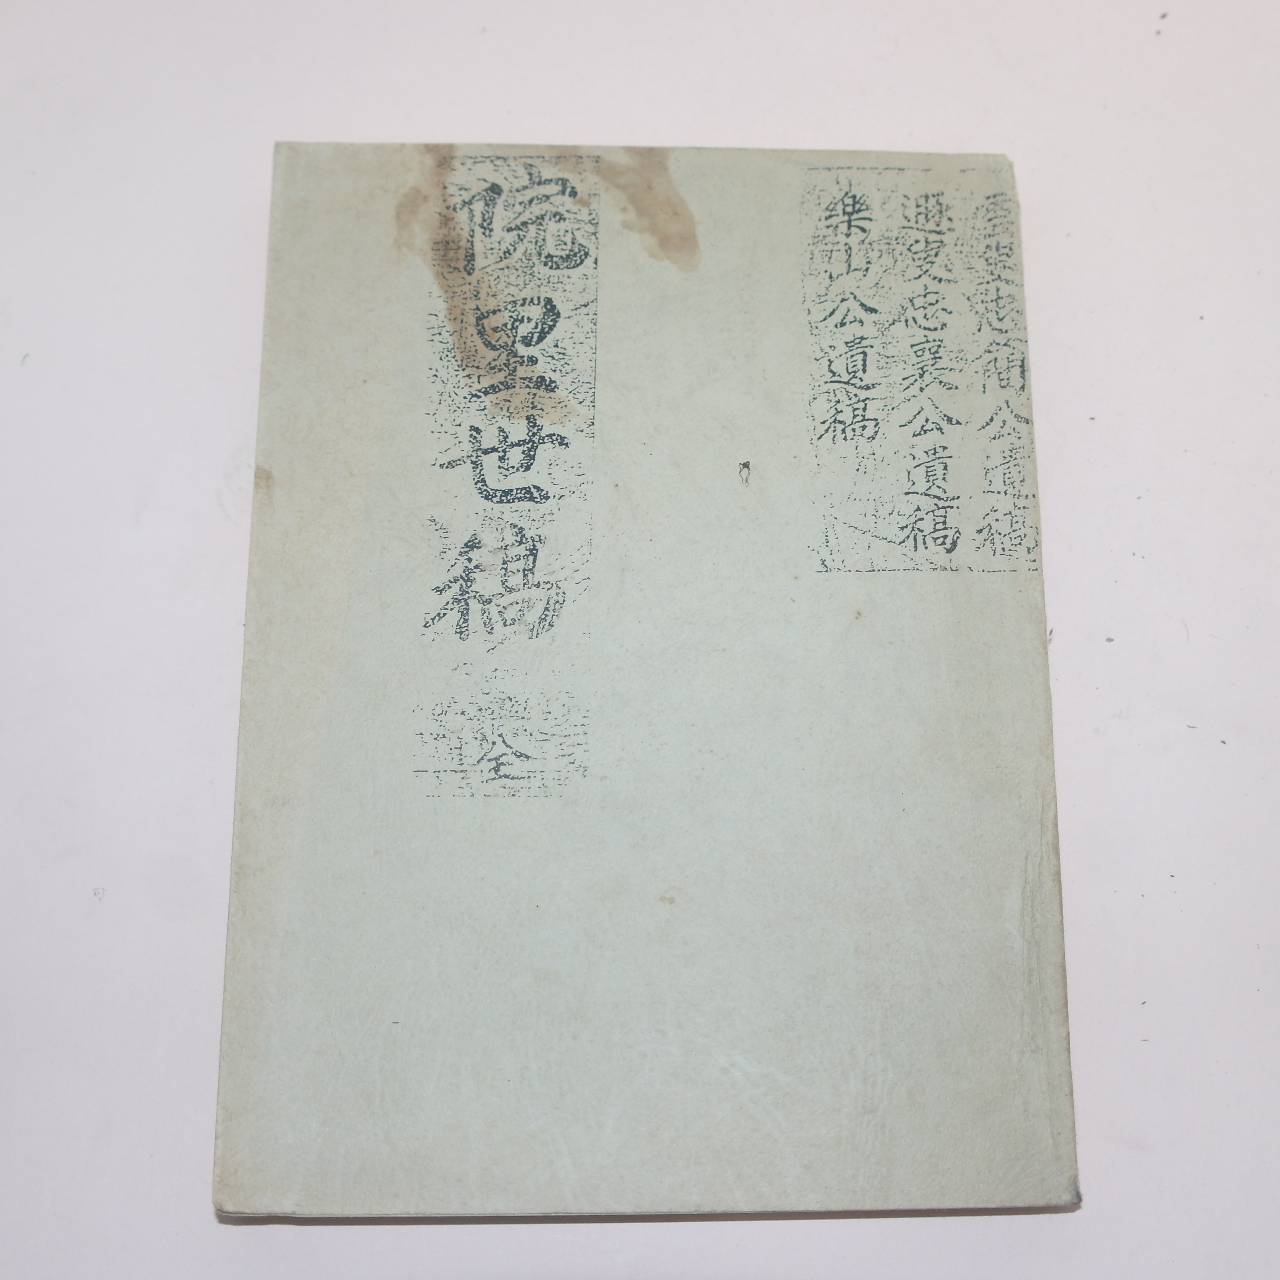 忠簡公遺稿
遯叟忠襄公遺稿
樂山公遺稿
院里世稿 全